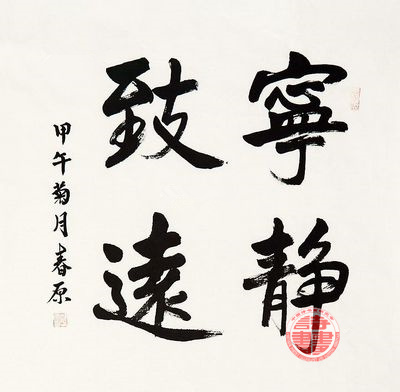 寧靜
致遠
甲午菊月春原